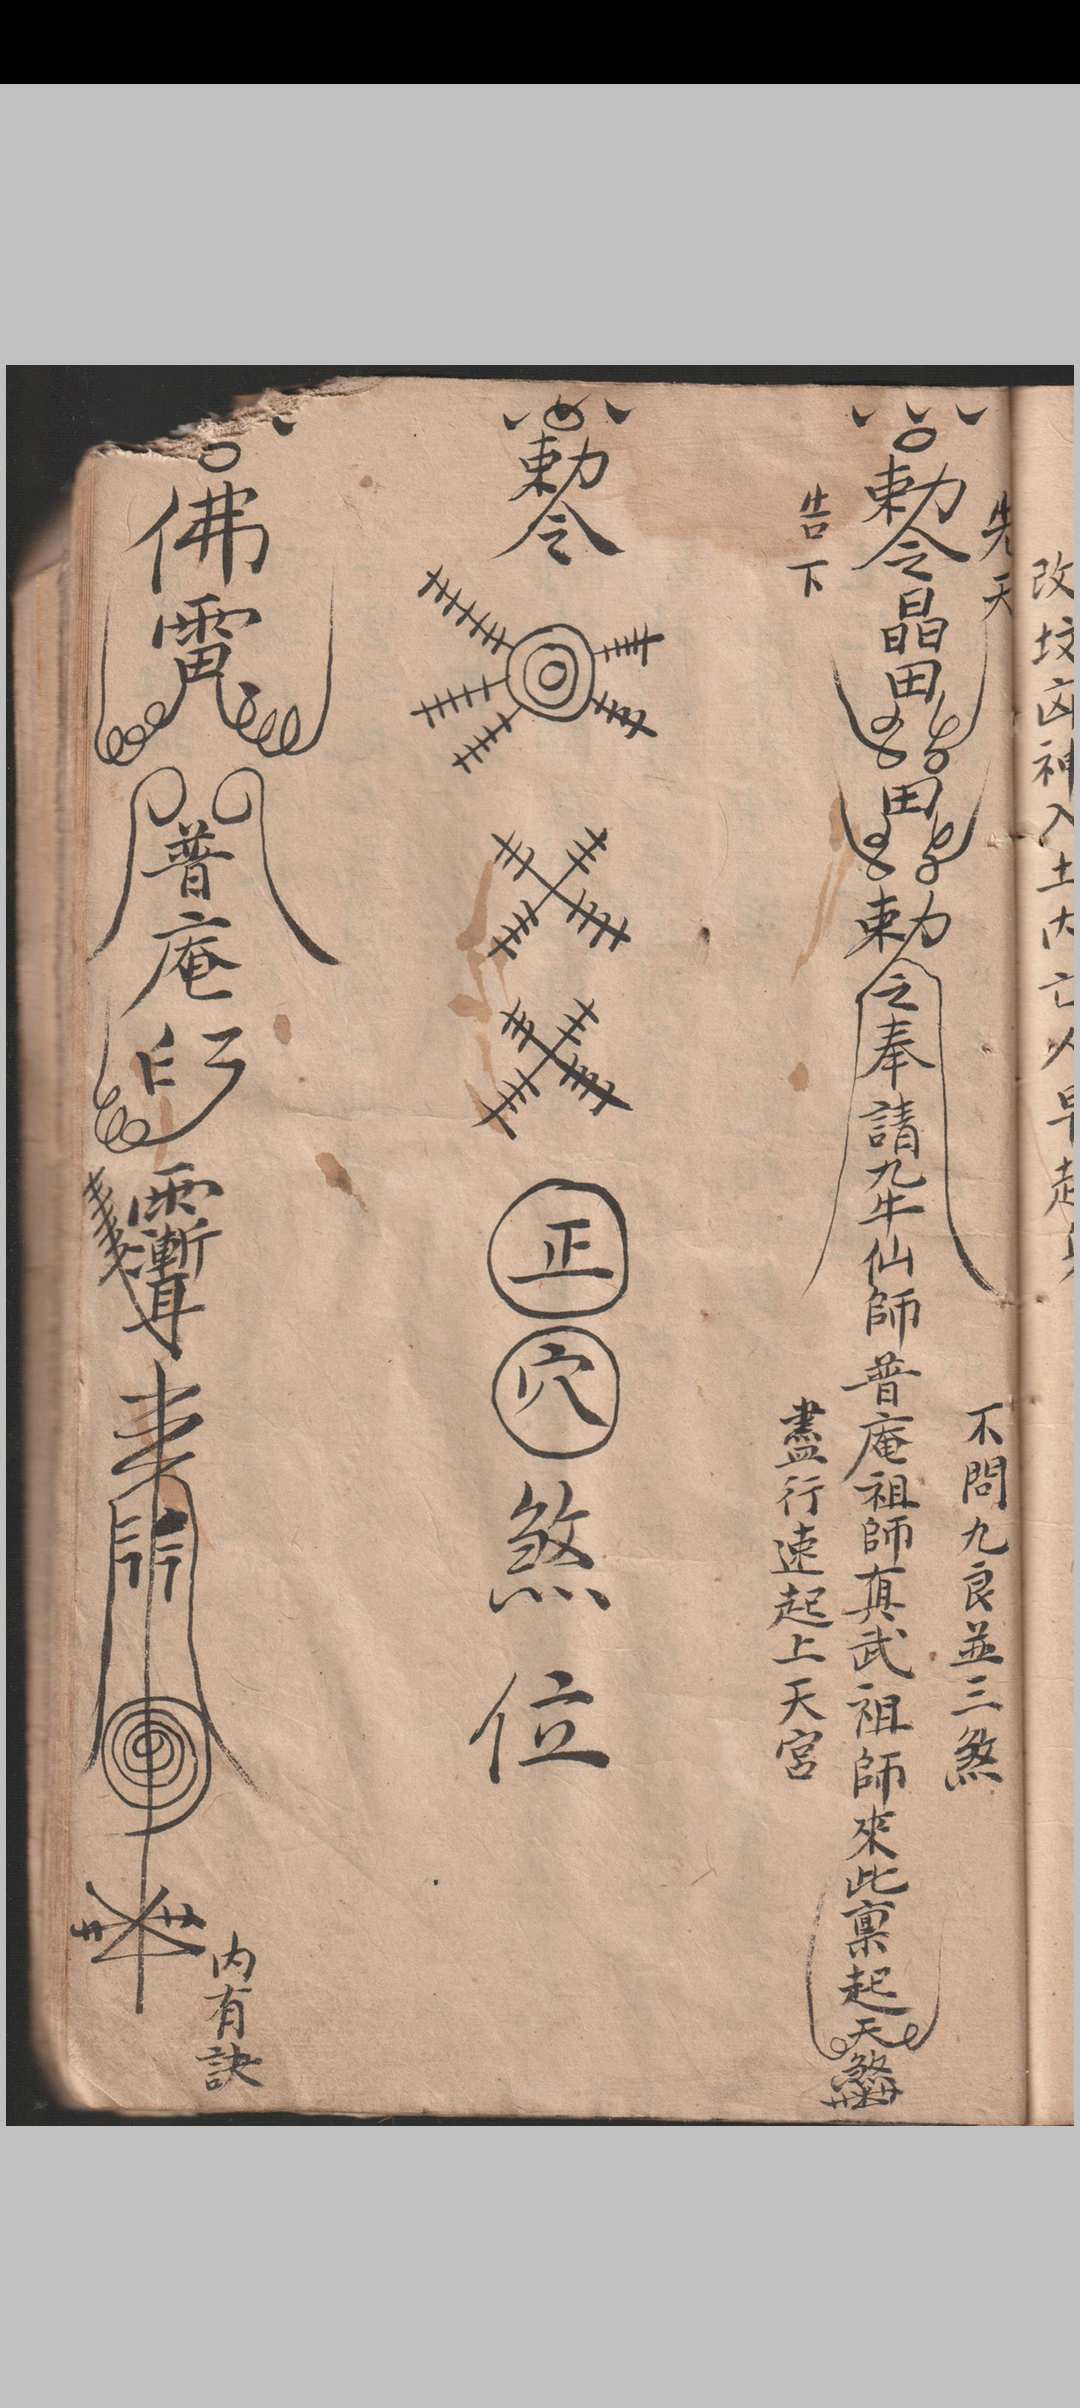 改坟凶神入土内亡人早起
先天
不問九良並三煞
勅令晶田田勅令奉請九牛仙師普庵祖師真武祖師來此禀起天煞
告下
盡行速起上天宮
勅令
正穴煞位
佛
普庵印
内有訣